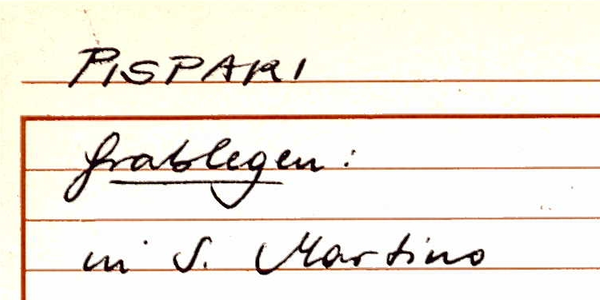 PISPARI
Grablegen:
in S. Martino